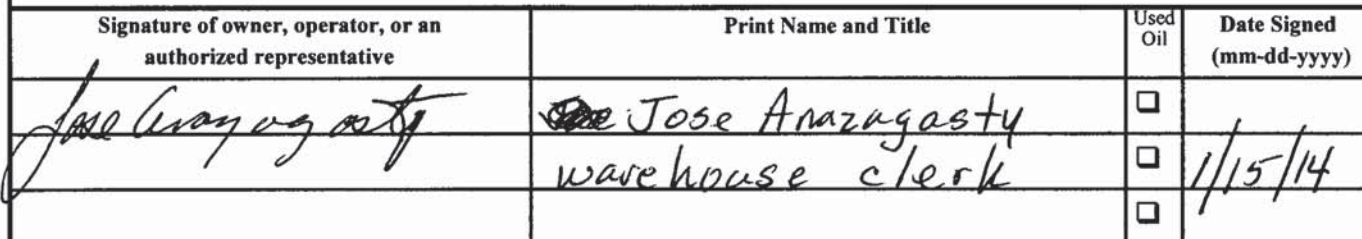 Signature of owner, operator, or an authorized representative
Print Name and Title
Used Oil
Date Signed (mm-dd-yyyy)
Jose Arazagasty
Jose Anazagasty
warehouse clerk
1/15/14